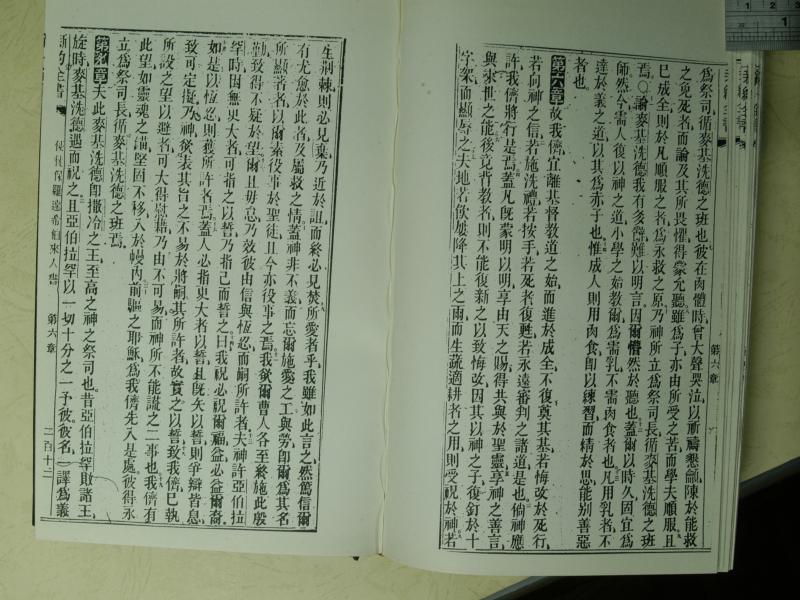 爲祭司循麥基洗德之班也彼在肉體時曾大聲哭泣以祈禱懇籲陳於能救
之免死者而論及其所畏懼得蒙允聽雖爲子亦由所受之苦而學夫順服且
已成全則於凡順服之者爲永救之原乃神所立爲祭司長循麥基洗德之班
焉○論麥基洗德我有多端難以明言因爾懵然於聽也蓋爾以時久固宜爲
師然今需人復以神之道小學之始教爾爲需乳不需肉食者也凡用乳者不
達於義之道以其爲赤子也惟成人則用肉食卽以練習而精於思能別善惡
者也
第六章故我儕宜離基督教道之始而進於成全不復奠其基若悔改於死行
若向神之信若施洗禮若按手若死者復甦若永遠審判之諸道是也倘神應
許我儕將行是焉蓋凡旣蒙明以明享由天之賜得共與於聖靈享神之善言
與來世之能後竟背教者則不能復新之以致悔改因其以神之子復釘於十
字架而顯辱之夫地若飲屢降其上之雨而生蔬適耕者之用則受祝於神若
第六章
生荆棘則必見棄乃近於詛而終必見焚所愛者乎我雖如此言之然篤信爾
有尤愈於此者及屬救之情蓋神非不義而忘爾施愛之工與勞卽爾爲其名
所顯者以爾素役事於聖徒且今亦役事之焉我欲爾曹人各至終施此殷
勤致得不疑於望爾且毋怠乃效彼由信與恆忍而嗣所許者夫神許亞伯拉
罕時因無更大者可指之以誓乃指己而誓之曰我祝必祝爾福益必益爾裔
如是以恆忍則獲所許者焉蓋人必指更大者以誓且旣矢以誓則爭辯皆息
致可定擬乃神欲表其旨之不易於將嗣其所許者故實之以誓致我儕已執
所設之望以避者可大得慰藉乃由不可易而神所不能謊之二事也我儕有
此望如靈魂之錨堅固不移入於幔內前驅之耶穌爲我儕先入是處彼得永
立爲祭司長循麥基洗德之班焉
第七章夫此麥基洗德卽撒冷之王至高之神之祭司也昔亞伯拉罕敗諸王
旋時麥基洗德遇而祝之且亞伯拉罕以一切十分之一予彼彼名譯爲義
新約全書
使徒保羅達希伯來人書 第六章 二百十二